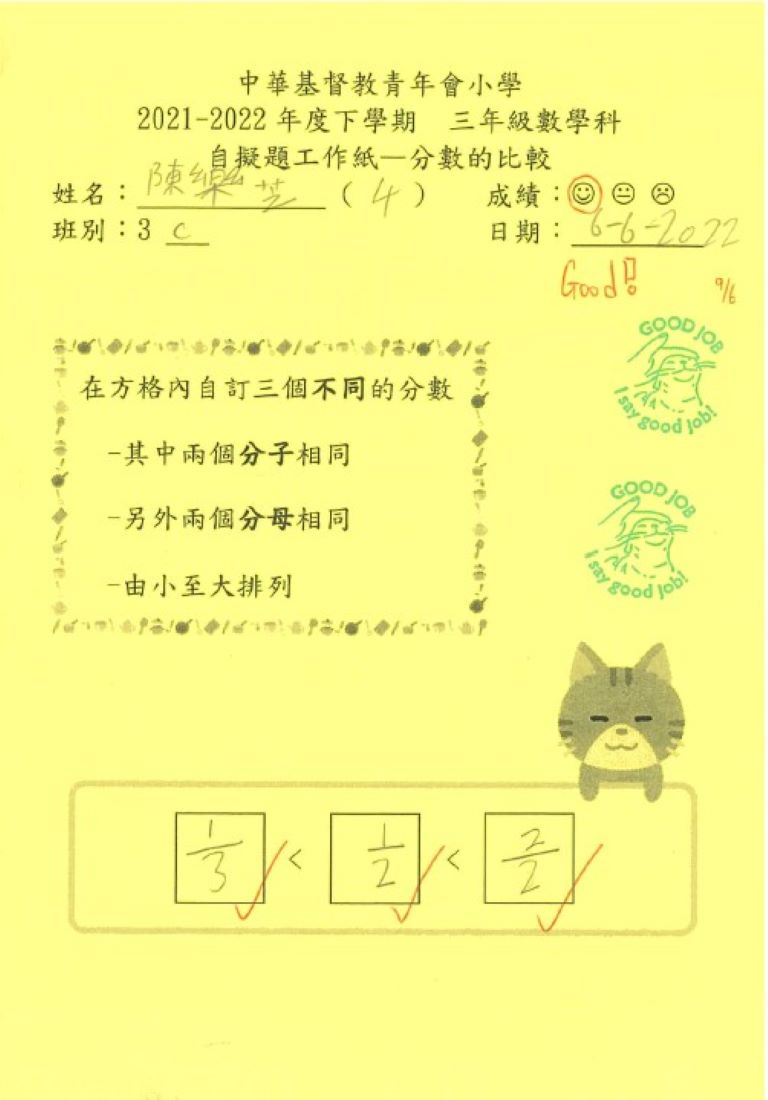 中華基督教青年會小學
2021-2022 年度下學期 三年級數學科
自擬題工作紙—分數的比較
姓名：陳樂芝 ( 4 ) 成績：☺ 😐 ☹
班別：3 C 日期：6-6-2022
Good! 9/6
GOOD JOB
I say good job!
在方格內自訂三個不同的分數
-其中兩個分子相同
-另外兩個分母相同
-由小至大排列
GOOD JOB
I say good job!
1/3 < 1/2 < 2/2